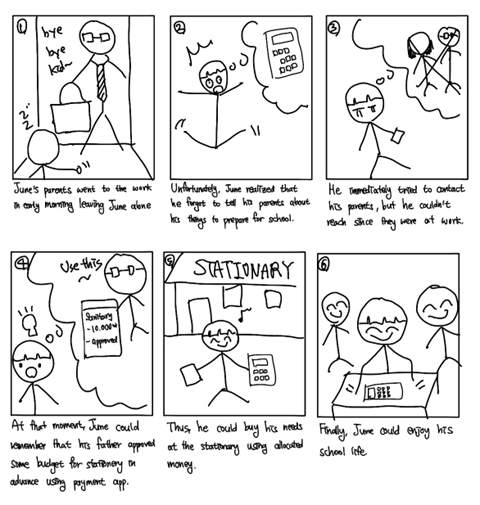 ①
bye
bye
kid~
zz..
June's parents went to the work
in early morning leaving June alone
②
Unfortunately, June realized that
he forgot to tell his parents about
his things to prepare for school.
③
He immediately tried to contact
his parents, but he couldn't
reach since they were at work.
④
Use this
~
Stationary
-10.000₩
- approved
At that moment, June could
remember that his father approved
some budget for stationery in
advance using payment app.
⑤
STATIONARY
Thus, he could buy his needs
at the stationary using allocated
money.
⑥
Finally, June could enjoy his
school life.